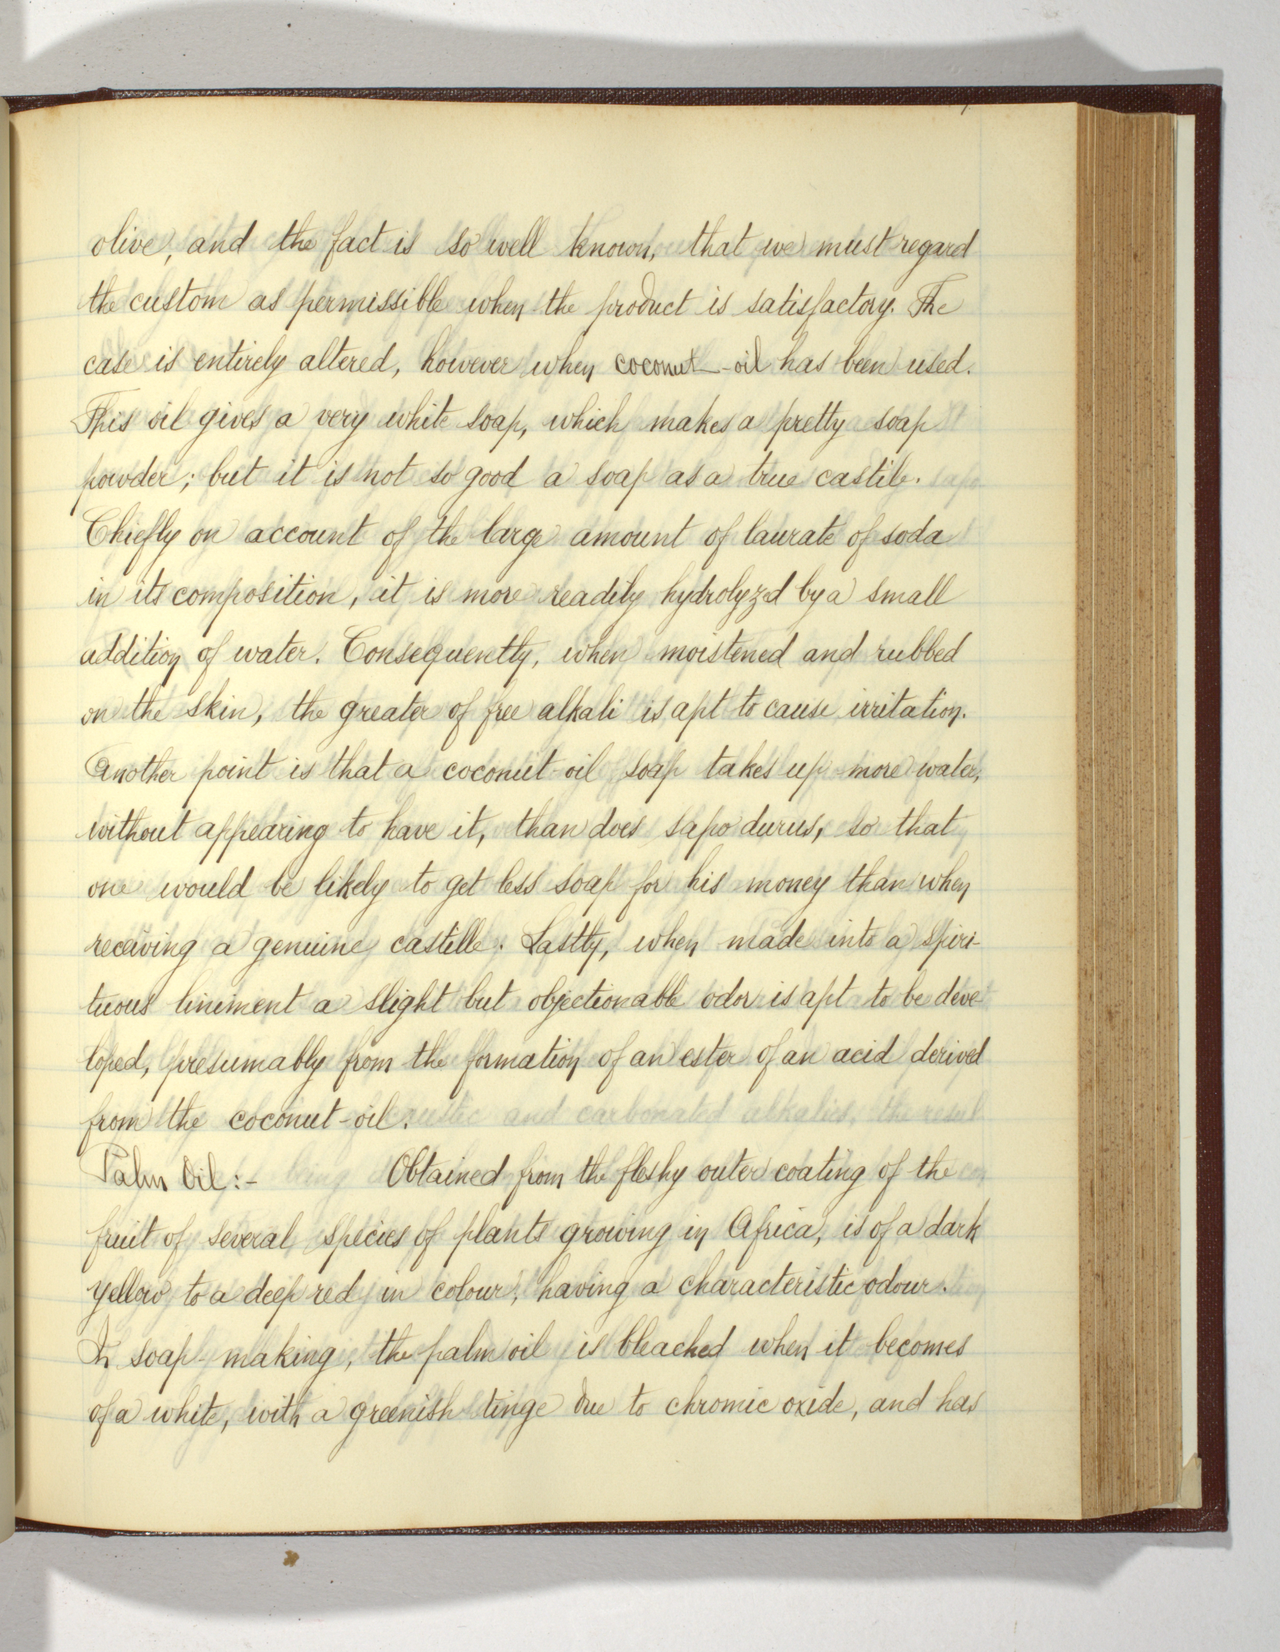 olive, and the fact is so well known, that we must regard
the custom as permissible when the product is satisfactory. The
case is entirely altered, however when coconut-oil has been used.
This oil gives a very white soap, which makes a pretty soap
powder; but it is not so good a soap as a true castile.
Chiefly on account of the large amount of laurate of soda
in its composition, it is more readily hydrolyzed by a small
addition of water. Consequently, when moistened and rubbed
on the skin, the greater of free alkali is apt to cause irritation.
Another point is that a coconut-oil soap takes up more water,
without appearing to have it, than does sapo durus, so that
one would be likely to get less soap for his money than when
receiving a genuine castille. Lastly, when made into a spiri-
tuous liniment a slight but objectionable odor is apt to be deve-
loped, presumably from the formation of an ester of an acid derived
from the coconut-oil.
Palm Oil:- Obtained from the fleshy outer coating of the
fruit of several species of plants growing in Africa, is of a dark
yellow to a deep red in colour, having a characteristic odour.
In soap-making, the palm oil is bleached when it becomes
of a white, with a greenish tinge due to chromic oxide, and has